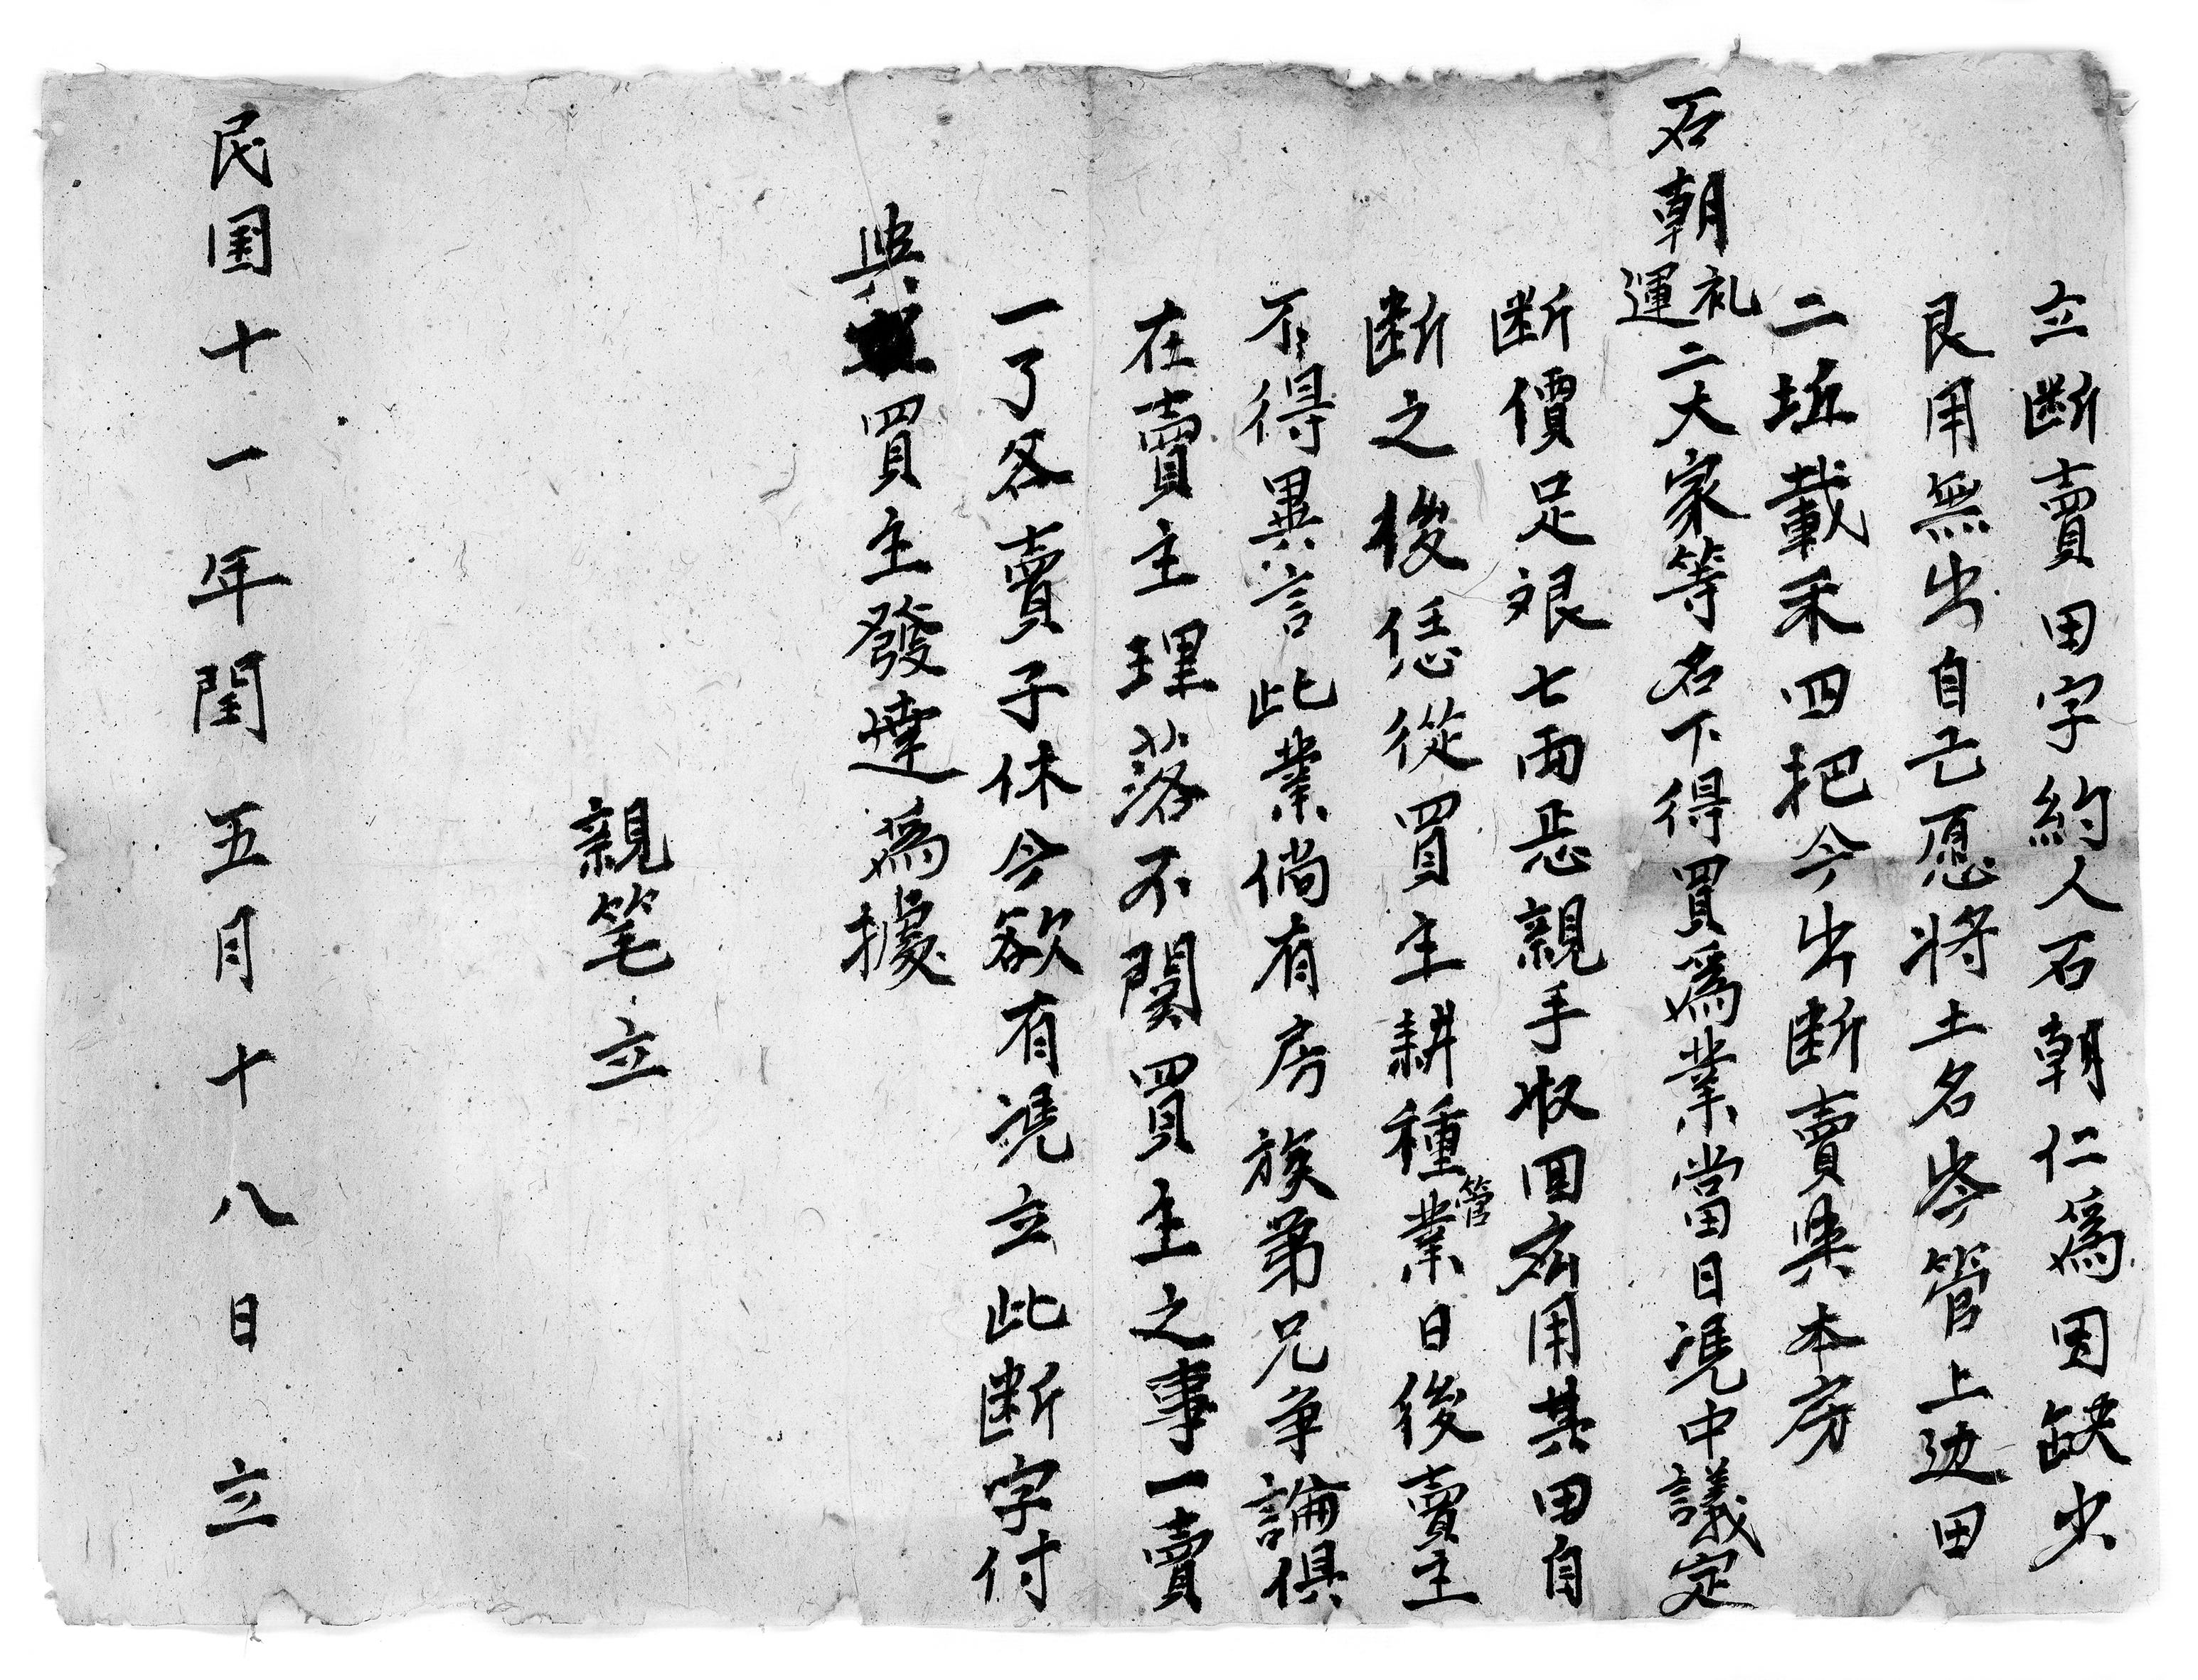 立断賣田字約人石朝仁爲因缺少
艮用無出自己愿将土名岑管上边田
二坵載禾四把今出断賣與本房
石朝礼運二大家等名下得買爲業當日凴中議定
断價足艮七両正親手収回应用其田自
断之後恁從買主耕種管業日後賣主
不得異言此業倘有房族弟兄争論俱
在賣主理落不関買主之事一賣
一了各賣子休今欲有凴立此断字付
與買主發達為據
親笔立
民国十一年閏五月十八日立